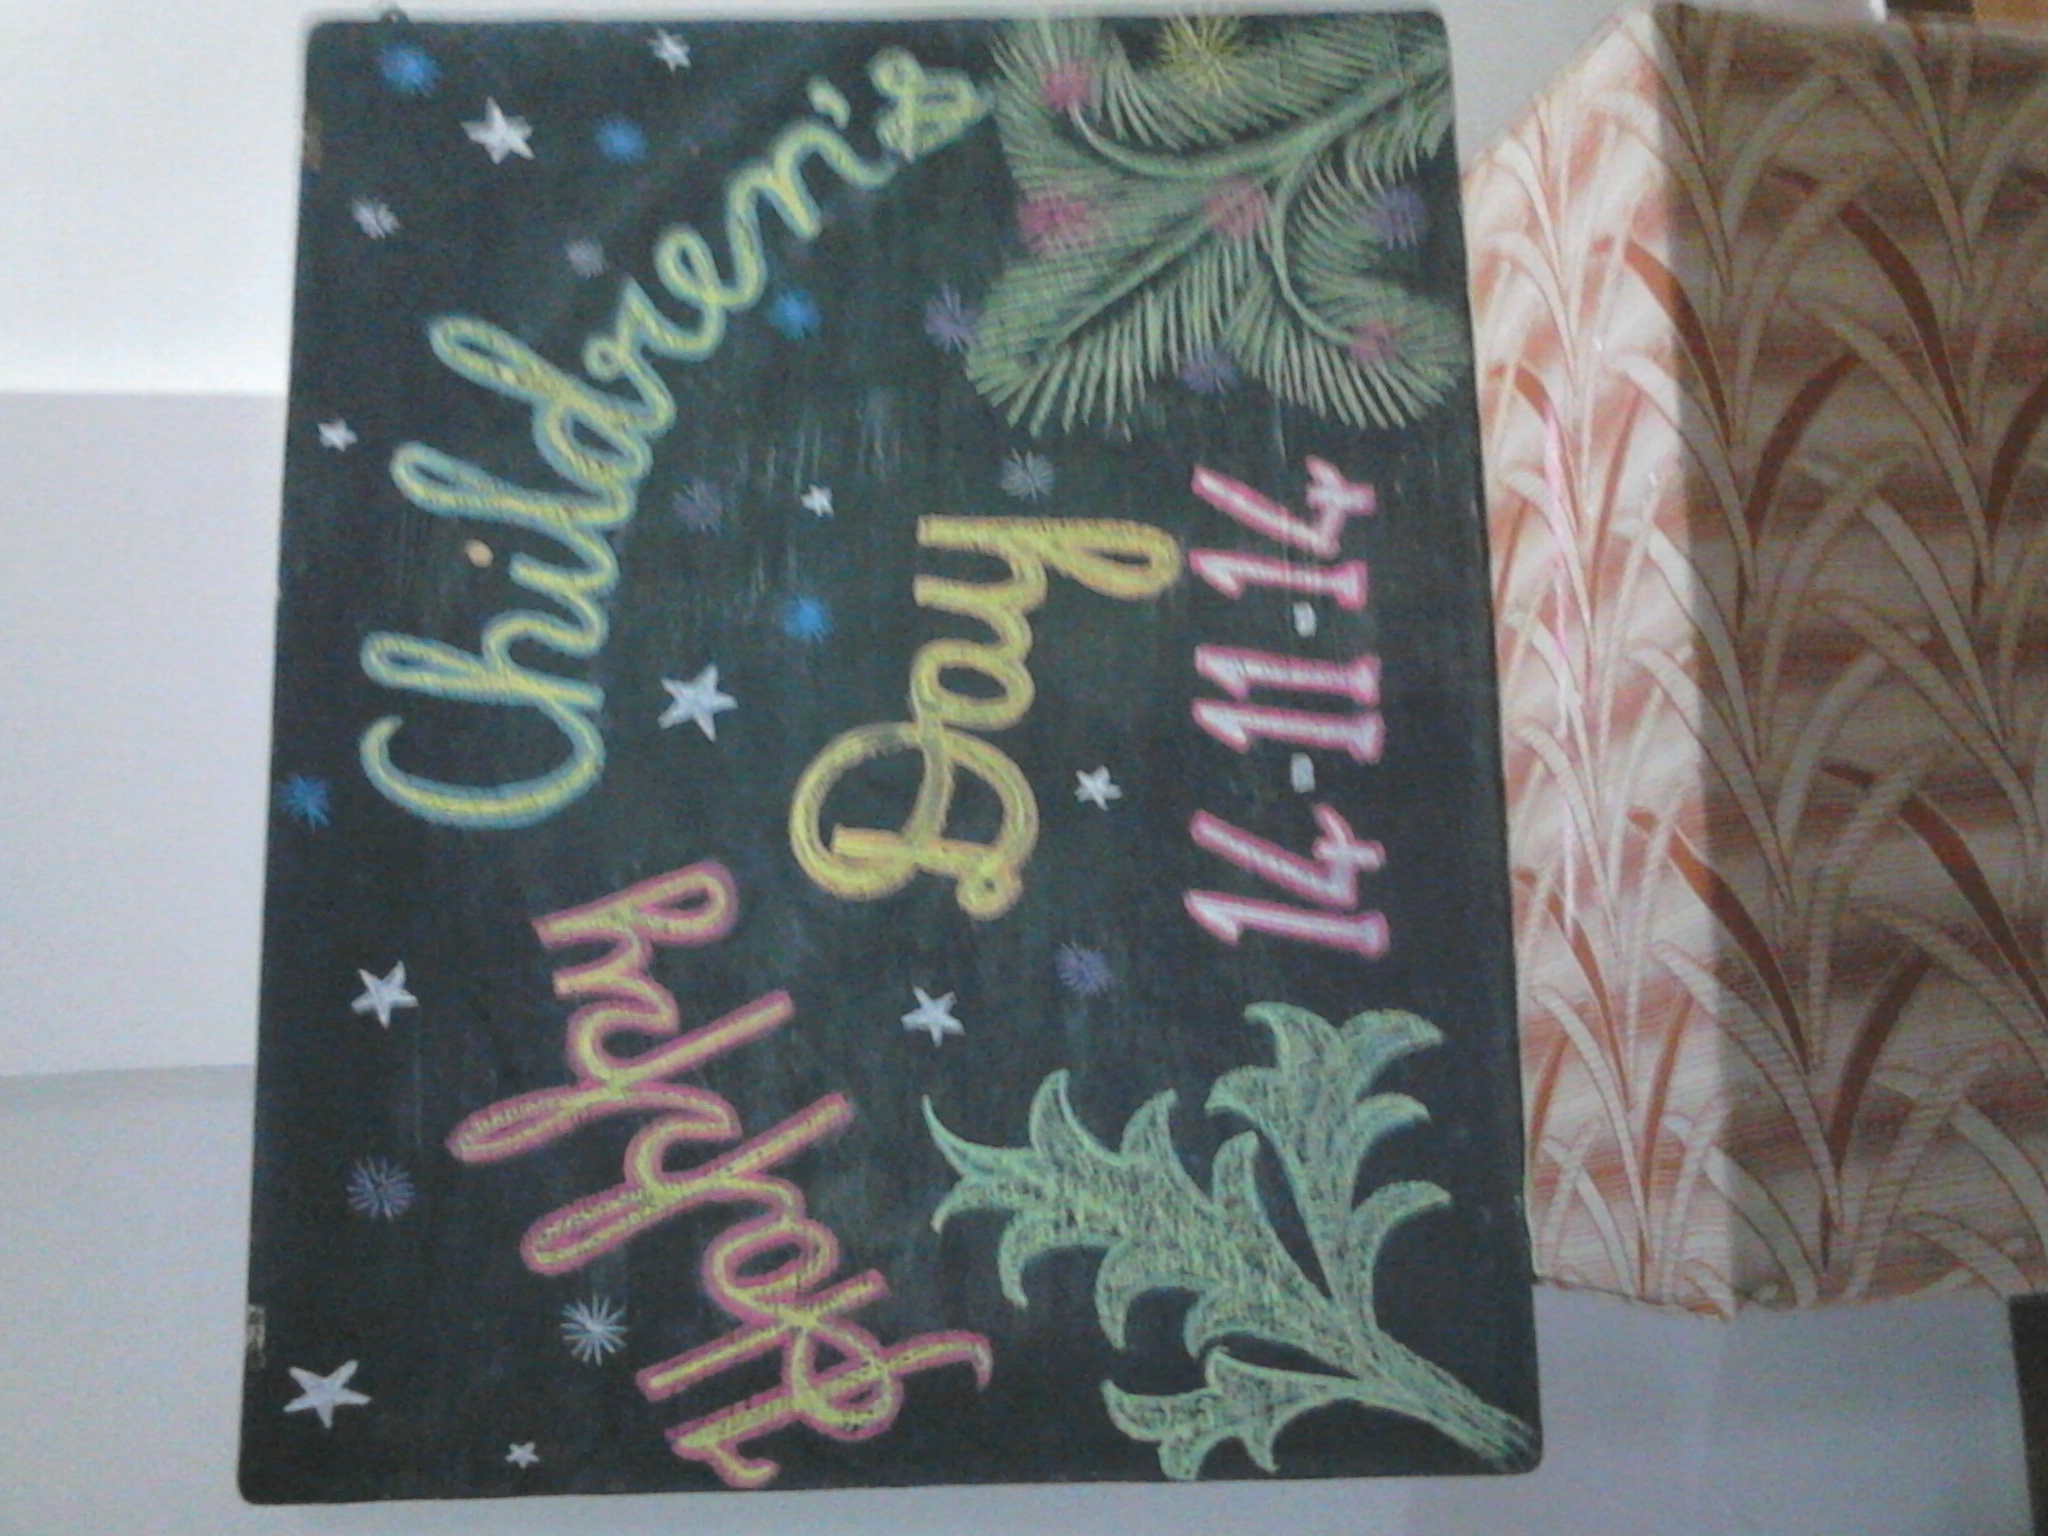 Happy Children's
Day
14-11-14